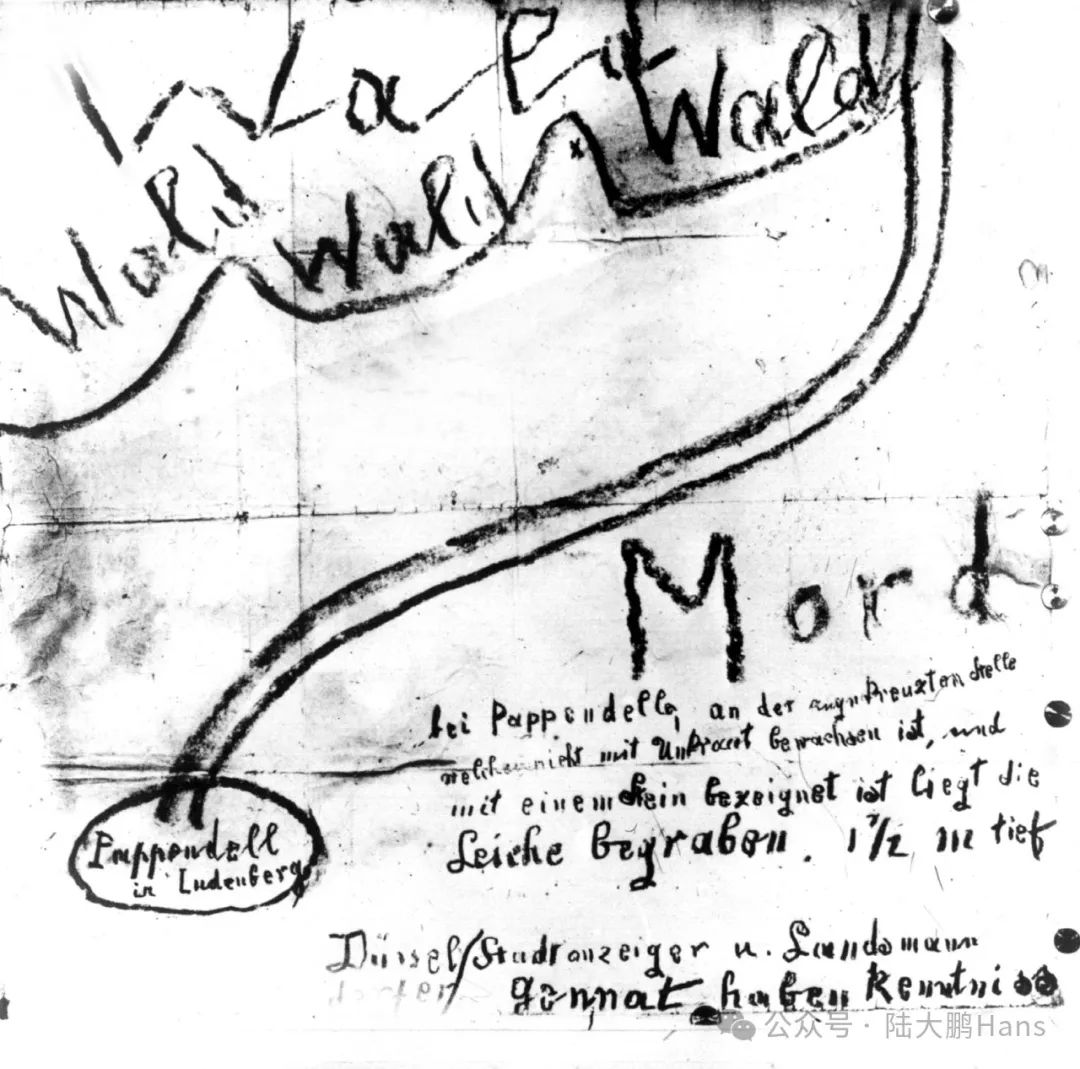 Wald
Wald
Wald
Wald
Mord
bei Pappendelle, an der angekreuzten Stelle
welche nicht mit Unkraut bewachsen ist, und
mit einem Stein bezeignet ist liegt die
Leiche begraben. 1 1/2 m tief
Pappendell
in Ludenberg
Düssel/Stadtanzeiger u. Landsmann
dorfer/ Gennat haben Kenntniss
公众号 · 陆大鹏Hans